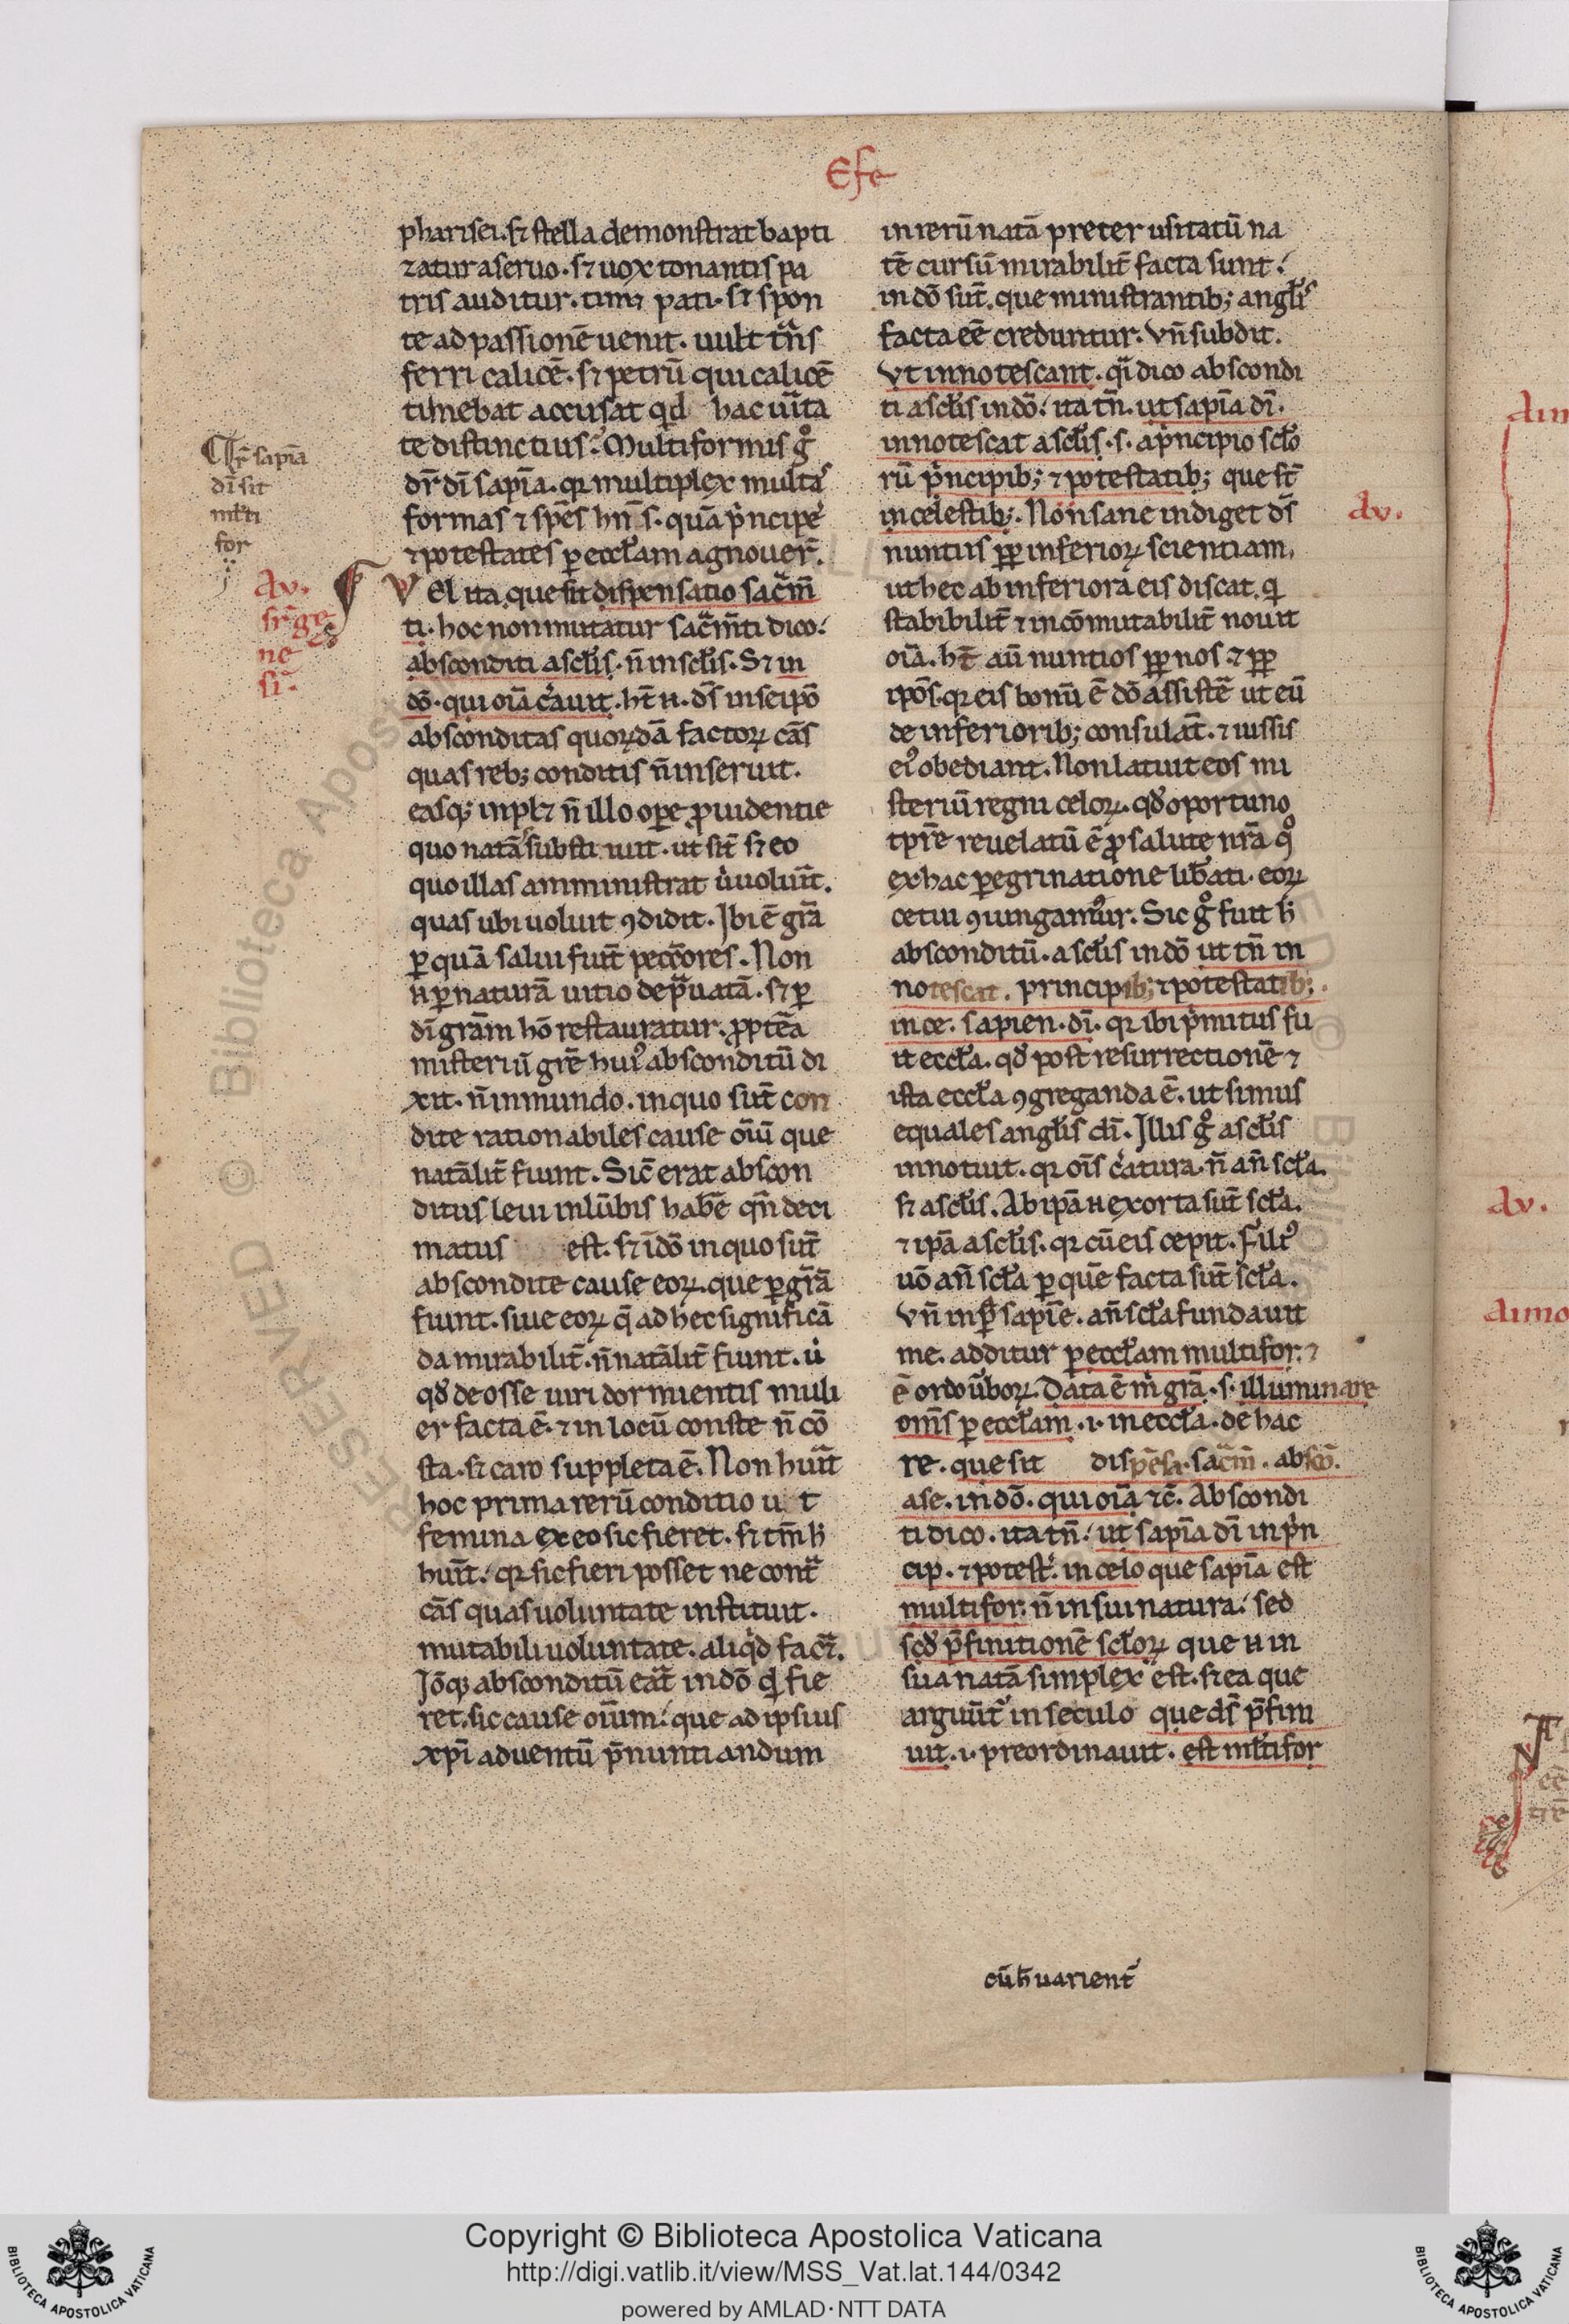 Efe
pharisei. sꝫ stella demonstrat bapti
zatur a seruo. sꝫ uox tonantis pa
tris auditur. timꝫ pati. sꝫ spon
te ad passionē uenit. uult tͣns
ferri calicē. sꝫ petrū qui calicē
timebat accusat qd hac uīta
te distinctius. Multiformis gͦ
dr̄ dī sapīa. qꝛ multiplex multas
formas ⁊ spēs hn̄s. quā p̍ncipes
⁊ potestates ꝑ eccłam agnouer̄.
Vel ita. que sit dispensatio sacͣm̄
ti. hoc non mutatur sacͣm̄ti dico.
absconditi a scłis. n̄ in scłis. Sꝫ in
dō. qui oīa c̍auit. ht̄ .n. ds̄ in seipō
absconditas quoꝝdā factoꝝ cās
quas rebꝫ conditis n̄ inseruit.
easqꝫ inplꝫ n̄ illo oꝑe ꝓuidentie
quo natās substituit. ut sīt sꝫ eo
quo illas amministrat u̍ uoluīt.
quas ubi uoluit ꝯdidit. Ibi ē gr̄a
ꝑ quā salui fiūt peccōres. Non
.n. ꝑ naturā uitio dep̄uatā. sꝫ ꝑ
dī grām hō restauratur. ꝓptēa
misteriū grē huiꝰ absconditū di
xit. n̄ in mundo. in quo sūt con
dite rationabiles cause oīū que
natālit̄ fiunt. Sic̄ erat abscon
ditus leui in lūbis habē qn̄ deci
matus est. sꝫ ī dō in quo sūt
abscondite cause eoꝝ. que ꝑ gr̄a
fiunt. siue eoꝝ q̄ ad hec significā
da mirabilit̄. n̄ natālit̄ fiunt. u̍
qd̄ de osse uiri dormientis muli
er facta ē. ⁊ in locū coste n̄ cō
sta. sꝫ caro suppleta ē. Non huīt
hoc prima rerū conditio u t
femina ex eo sic fieret. sꝫ tm̄ h̄
huīt. qꝛ sic fieri posset ne contͣ
cās quas uoluntate instituit.
mutabili uoluntate. aliq̍d facꝫ.
Iō qꝫ absconditū eāt in dō q̍ fie
ret. sic cause oīum. que ad ipsius
xp̄i aduentū p̄nuntiandum
in rerū natā preter usitatū na
tē cursū mirabilit̄ facta sunt.
in dō sūt. que ministrantibꝫ angłis
facta eē creduntur. Vn̄ subdit.
Vt innotescant. q̍ dico abscondi
ti a scłis in dō. ita tn̄. ut sapīa dī.
innotescat a scłis. s. a p̍ncipio scło
rū p̍ncipibꝫ ⁊ potestatibꝫ que st̄
in celestibꝫ. Non sane indiget ds̄
nuntiis ꝓꝑ inferioꝝ scientiam.
ut hec ab inferiora eis discat. q̍
stabibilit̄ ⁊ incōmutabilit̄ nouit
oīa. ht̄ aū nuntios ꝓꝑ nos. ⁊ ꝓꝑ
ipōs. qꝛ eis bonū ē dō assistē ut eū
de inferioribꝫ consulāt. ⁊ iussis
eiꝰ obediant. Non latuit eos mi
steriū regni celoꝝ. qd̄ oportuno
tp̄re reuelatū ē ꝓ salute nr̄a qͦ
ex hac ꝑegrinatione libāti. eoꝝ
cetui ꝯiungamur. Sic gͦ fuit h̄
absconditū. a scłis in dō ut tn̄ in
notescat. principibꝫ ⁊ potestatibꝫ.
in ce. sapien. dī. qꝛ ibi p̍mitus fu
it eccła. qd̄ post resurrectionē ⁊
ista eccła ꝯgreganda ē. ut simus
equales angłis dī. Illis gͦ a scłis
innotuit. qꝛ oīs c̍atura. n̄ an̄ scła.
sꝫ a scłis. Ab ipā .n. exorta sūt scła.
⁊ ipā a scłis. qꝛ cū eis cepit. Filiꝰ
uō an̄ scła ꝑ quē facta sūt scła.
Vn̄ in p̄s sapīe. an̄ scła fundauit
me. additur ꝑ eccłam multifor. ⁊
ē ordo ūboꝝ. Data ē m̍ grā. s. illuminare
om̄s ꝑ eccłam .i. in eccła. de hac
re. que sit dispēsa. sacͣm̄. abscō.
a se. in dō. qui oīa ⁊c̄. Abscondi
ti dico. ita tn̄. ut sapīa dī in p̍n
cip. ⁊ potest̄. in celo que sapīa est
multifor. n̄ in sui natura. sed
scd̄ p̄finitionē scłoꝝ que .n. in
sua natā simplex est. sꝫ ea que
arguūtꝰ in seculo que ds̄ p̄fini
uit. i. preordinauit. est młtifor
¶ qꝛ sapīa
dī sit
młti
for
Av.
sr̄ ge
ne
si.
Av.
cū h̄ uarient̄
Aim
Av.
Aimo
Copyright © Biblioteca Apostolica Vaticana
http://digi.vatlib.it/view/MSS_Vat.lat.144/0342
powered by AMLAD·NTT DATA
BIBLIOTECA APOSTOLICA VATICANA
BIBLIOTECA APOSTOLICA VATICANA